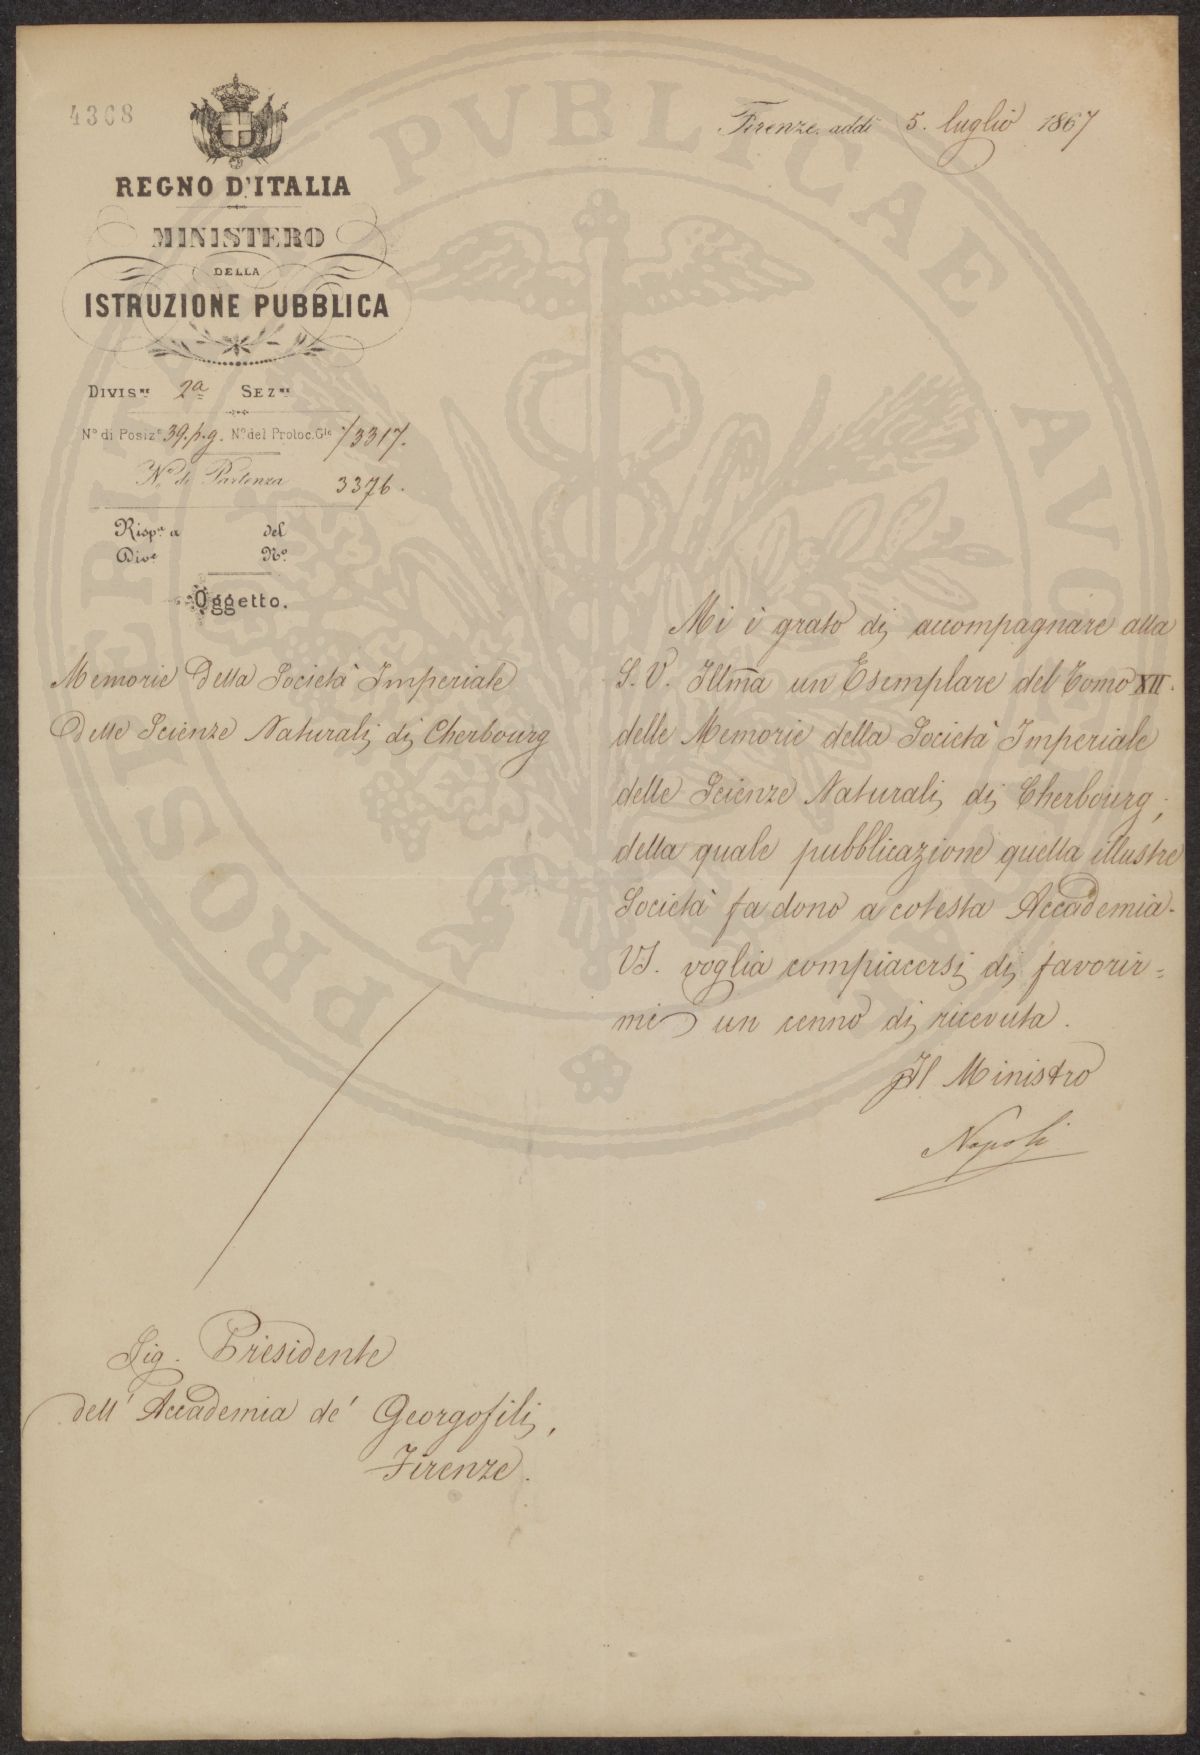 4308
REGNO D'ITALIA
MINISTERO
DELLA
ISTRUZIONE PUBBLICA
DIVIS.ne 2a SEZ.ne
N° di Posiz.e 39.p.g. N° del Protoc. Gle 13317.
N.o di Partenza 3376.
Risp.a a del
Div.e N.o
Oggetto.
Memorie della Società Imperiale
delle Scienze Naturali di Cherbourg
Firenze, addì 5. luglio 1867
Mi è grato di accompagnare alla
S.V. Illma un Esemplare del Tomo XII.
delle Memorie della Società Imperiale
delle Scienze Naturali di Cherbourg,
della quale pubblicazione quella illustre
Società fa dono a cotesta Accademia.
VS. voglia compiacersi di favorir=
mi un cenno di ricevuta.
Il Ministro
Napoli
Sig. Presidente
dell'Accademia de' Georgofili,
Firenze.
PROSPERITATI PVBLICAE AVGENDAE